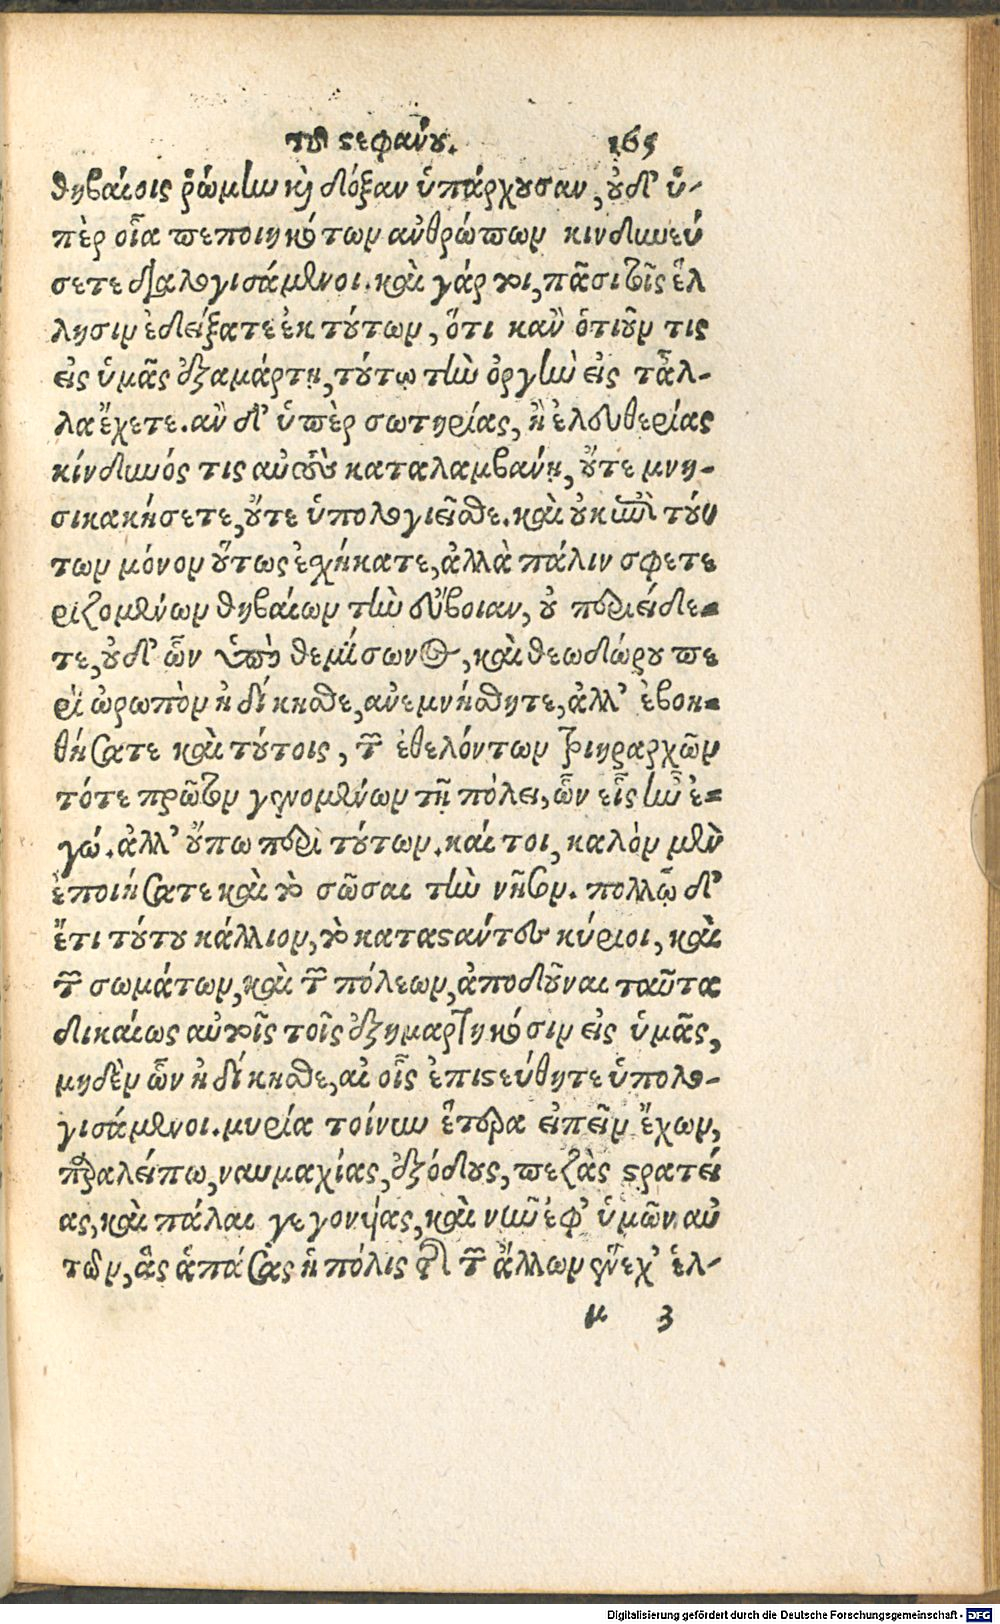 τοῦ στεφάνου. 165
θηβαίοις ῥώμην καὶ δόξαν ὑπάρχουσαν, οὐδ' ὑ-
πὲρ οἷα πεποιηκότων ἀνθρώπων κινδυνεύ
σετε διαλογισάμενοι. καὶ γάρ τοι, πᾶσι τοῖς ἕλ
λησιν ἐδείξατε ἐκ τούτων, ὅτι κἂν ὁτιοῦν τις
εἰς ὑμᾶς ἐξαμάρτῃ, τούτῳ τὴν ὀργὴν εἰς τἆλ-
λα ἔχετε. ἂν δ' ὑπὲρ σωτηρίας, ἢ ἐλευθερίας
κίνδυνός τις αὐτοὺς καταλαμβάνῃ, οὔτε μνη-
σικακήσετε, οὔτε ὑπολογιεῖσθε. καὶ οὐκ ἐπὶ τού
των μόνον οὕτως ἐσχήκατε, ἀλλὰ πάλιν σφετε
ριζομένων θηβαίων τὴν εὔβοιαν, οὐ περιείδε-
τε, οὐδ' ὧν ὑπὸ θεμίσωνος, καὶ θεωδώρου πε
ρὶ ὠρωπὸν ἠδίκησθε, ἀνεμνήσθητε, ἀλλ' ἐβοη-
θήσατε καὶ τούτοις, τῶν ἐθελόντων τριηραρχῶν
τότε πρῶτον γενομένων τῇ πόλει, ὧν εἷς ἦν ἐ-
γώ. ἀλλ' οὔπω περὶ τούτων. καίτοι, καλὸν μὲν
ἐποιήσατε καὶ τὸ σῶσαι τὴν νῆσον. πολλῷ δ'
ἔτι τούτου κάλλιον, τὸ καταστάντες κύριοι, καὶ
τῶν σωμάτων, καὶ τῶν πόλεων, ἀποδοῦναι ταῦτα
δικαίως αὐτοῖς τοῖς ἐξημαρτηκόσιν εἰς ὑμᾶς,
μηδὲν ὧν ἠδίκησθε, αἱ οἷς ἐπιστεύθητε ὑπολο-
γισάμενοι. μυρία τοίνυν ἕτερα εἰπεῖν ἔχων,
παραλείπω, ναυμαχίας, ἐξόδους, πεζὰς στρατεί
ας, καὶ πάλαι γεγονυίας, καὶ νῦν ἐφ' ὑμῶν αὐ
τῶν, ἃς ἁπάσας ἡ πόλις διὰ τῶν ἄλλων ἕνεχ' ἑλ-
μ 3
Digitalisierung gefördert durch die Deutsche Forschungsgemeinschaft - DFG